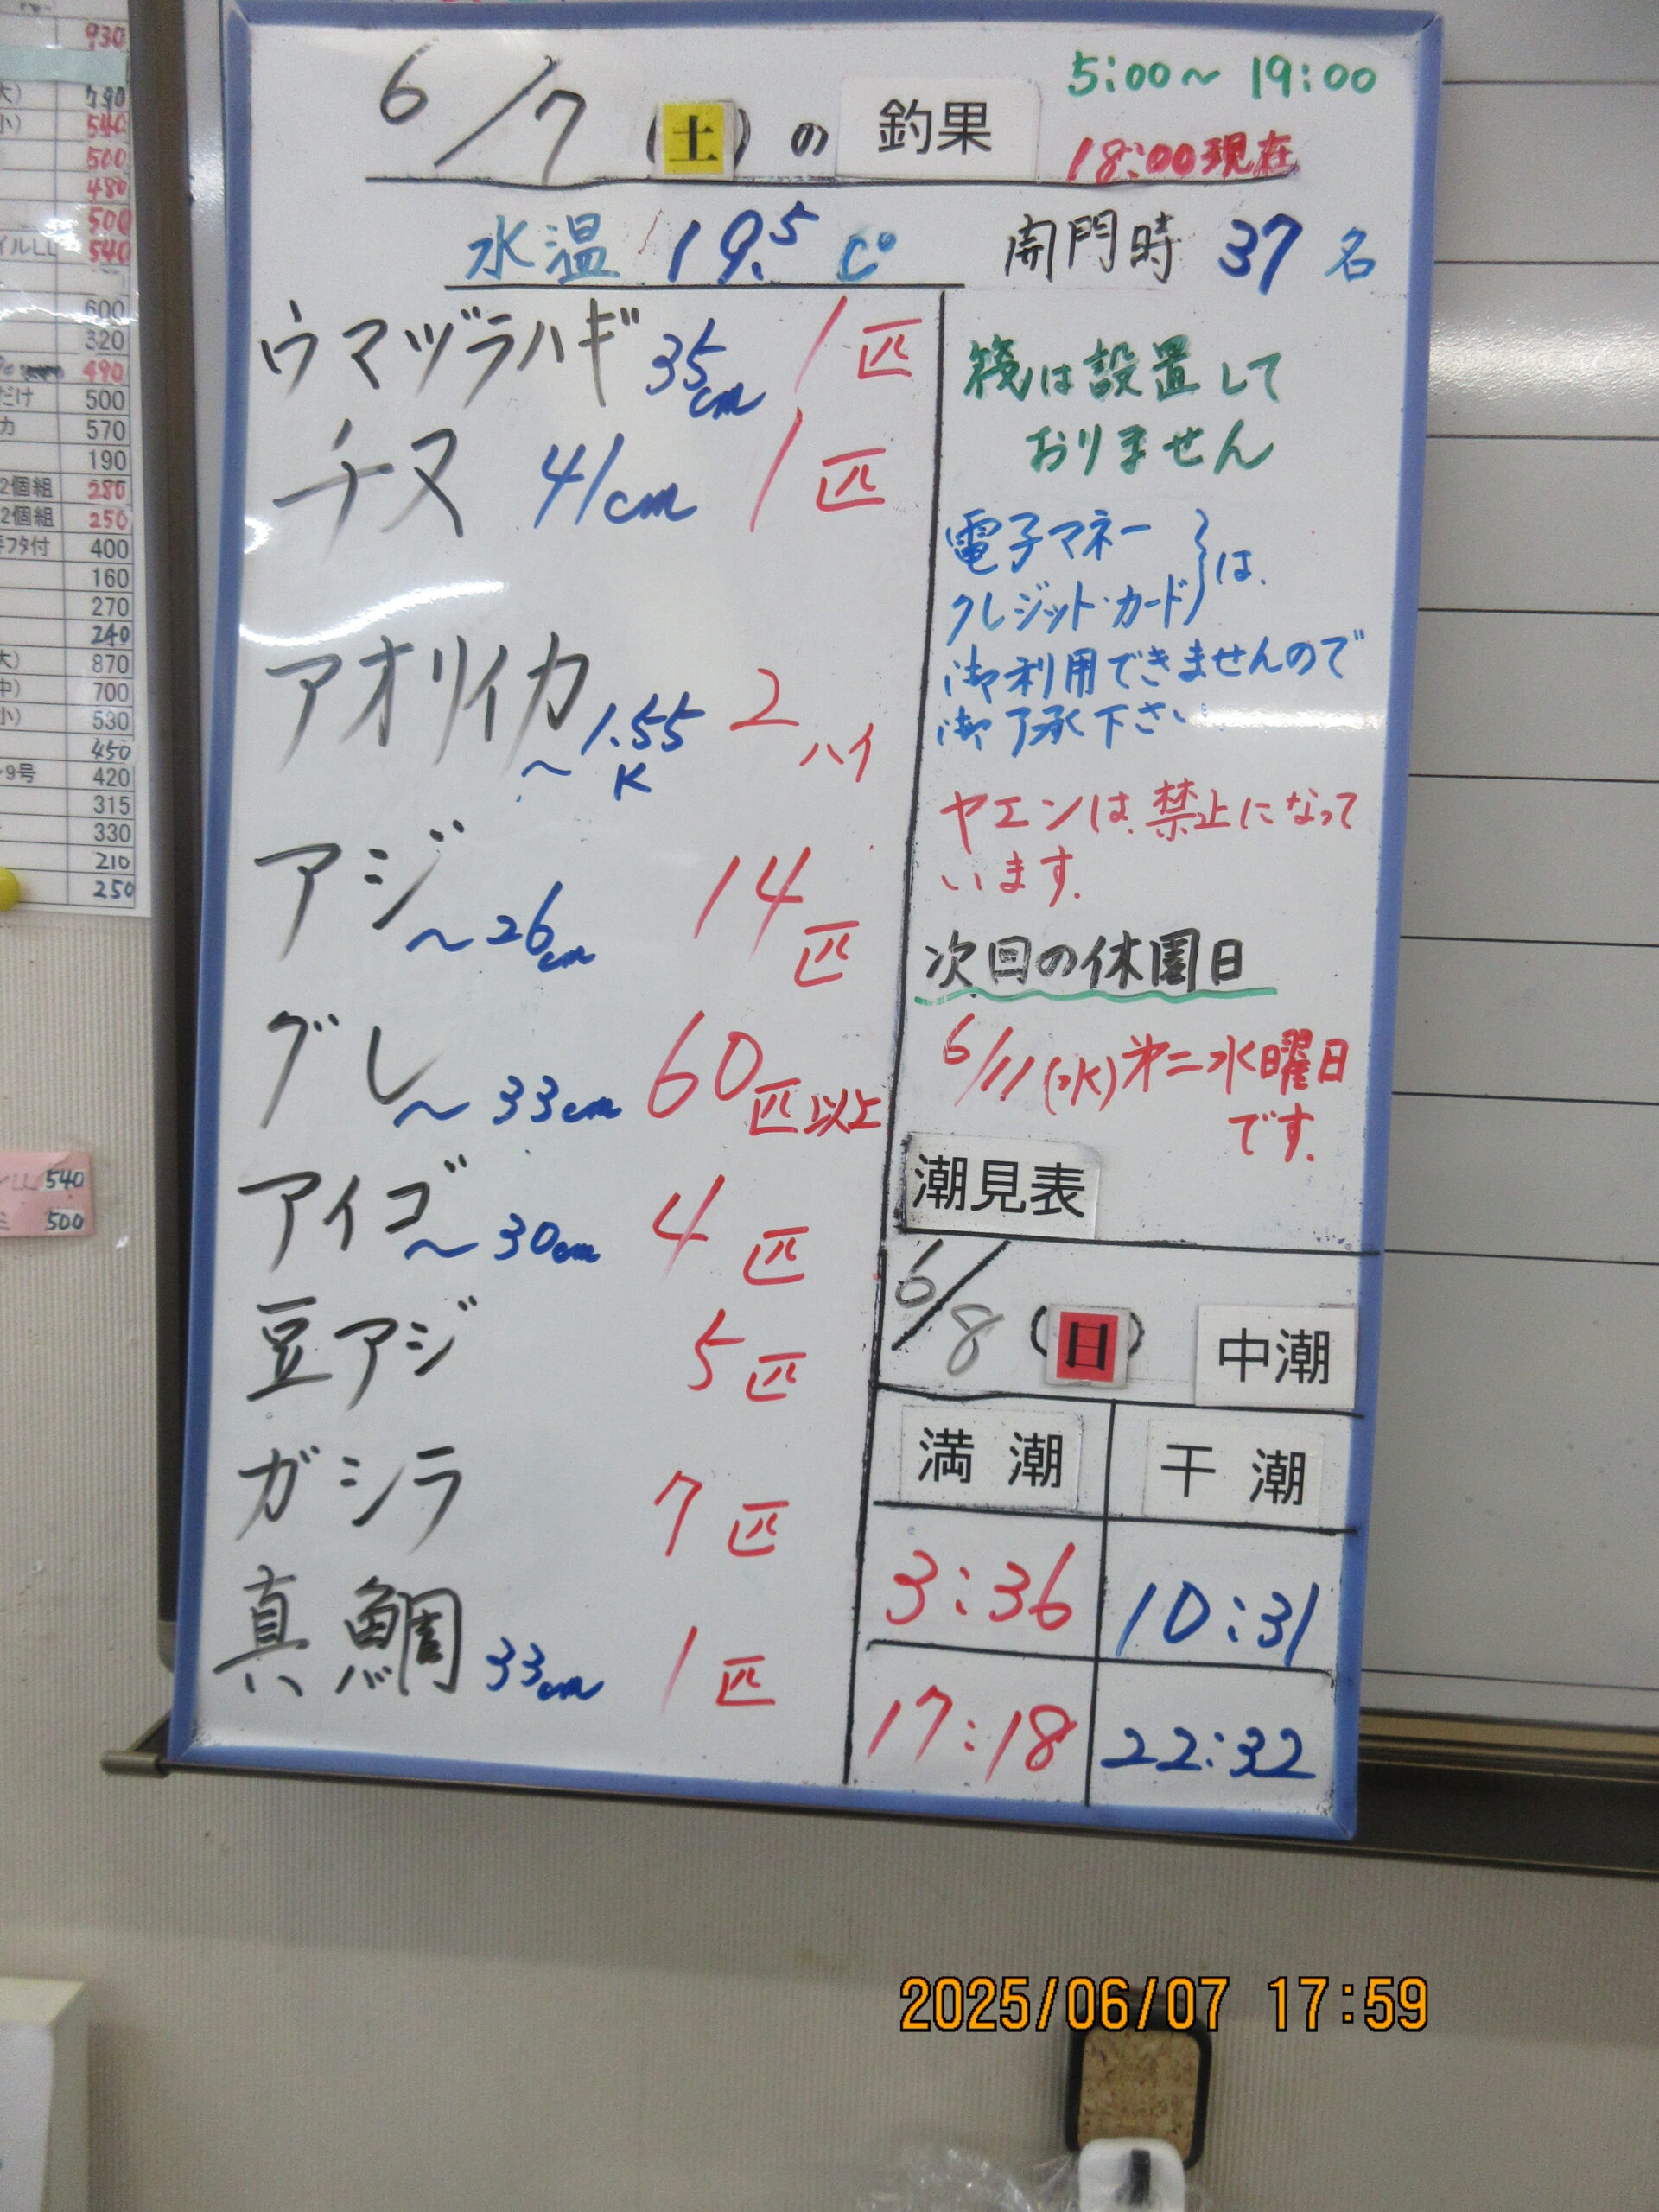 6/7(土)の釣果
5:00~19:00
18:00現在
水温 19.5 C°
開門時 37名
ウマヅラハギ 35cm 1匹
チヌ 41cm 1匹
アオリイカ ~1.55K 2ハイ
アジ ~26cm 14匹
グレ ~33cm 60匹以上
アイゴ ~30cm 4匹
豆アジ 5匹
ガシラ 7匹
真鯛 33cm 1匹
筏は設置して
おりません
電子マネー
クレジット・カード}は、
御利用できませんので
御了承下さい
ヤエンは、禁止になって
います。
次回の休園日
6/11(水)第二水曜日
です。
潮見表
6/8(日) 中潮
満潮 干潮
3:36 10:31
17:18 22:32
930
大) 790
小) 540
500
480
500
イルLL 540
600
320
490
だけ 500
カ 570
190
2個組 280
2個組 250
フタ付 400
160
270
240
大) 870
中) 700
小) 530
450
9号 420
315
330
210
250
LL 540
ミ 500
2025/06/07 17:59